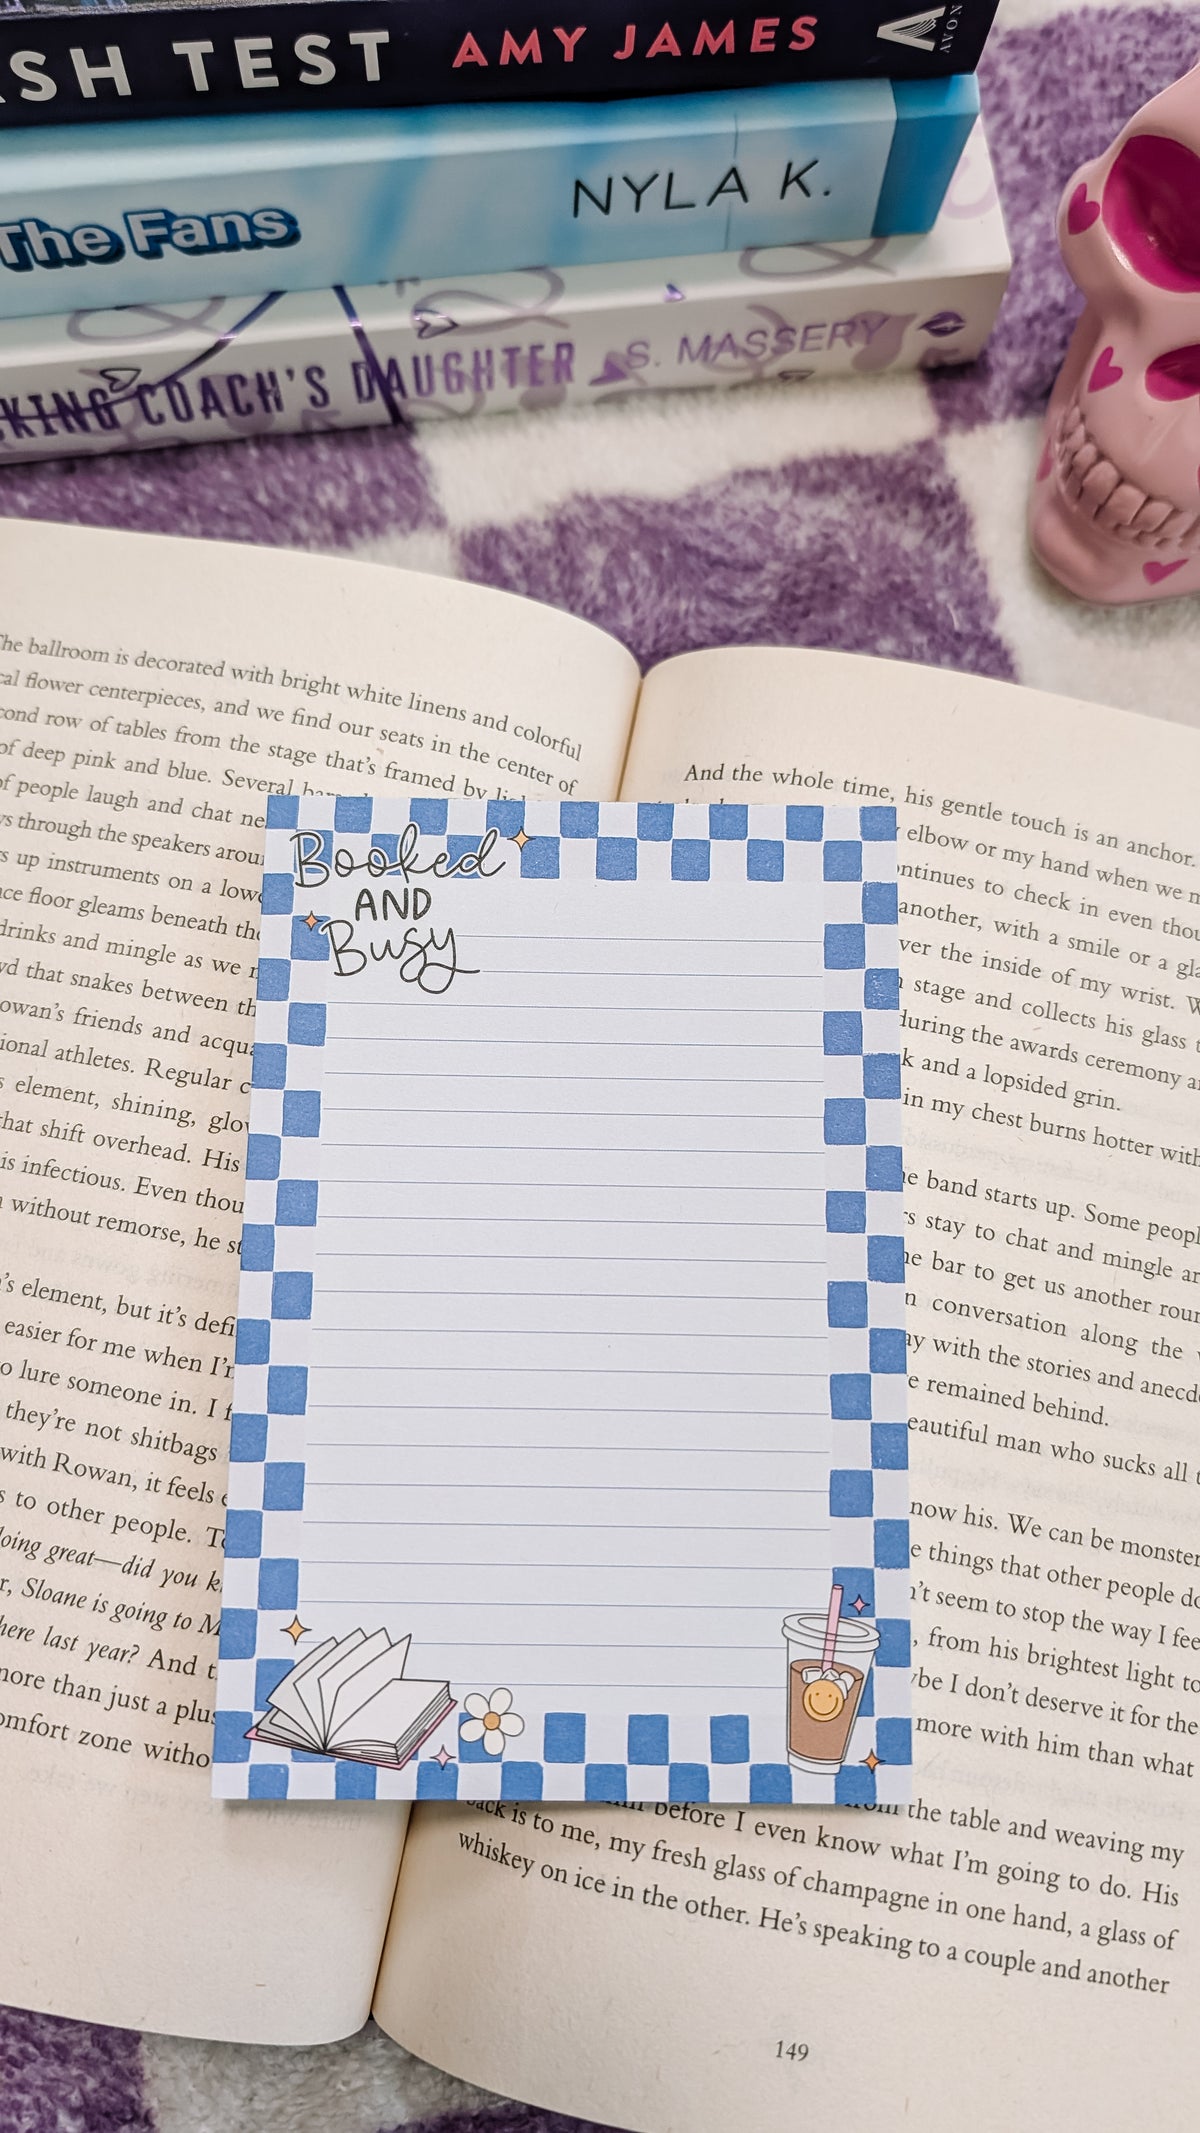 SH TEST AMY JAMES AVON
The Fans NYLA K.
KING COACH'S DAUGHTER S. MASSERY
The ballroom is decorated with bright white linens and colorful
cal flower centerpieces, and we find our seats in the center of
cond row of tables from the stage that's framed by
of deep pink and blue. Several
of people laugh and chat
ys through the speakers
rs up instruments on a
nce floor gleams beneath
drinks and mingle as we
wd that snakes between
owan's friends and
ional athletes. Regular
s element, shining,
that shift overhead. His
is infectious. Even
without remorse, he
's element, but it's
easier for me when
o lure someone in. I
they're not shitbags
with Rowan, it feels
s to other people.
doing great—did you
r, Sloane is going to
here last year? And
more than just a
omfort zone
Booked
AND
Busy
And the whole time, his gentle touch is an anchor.
elbow or my hand when we
ontinues to check in even
another, with a smile or a
ver the inside of my wrist.
stage and collects his glass
during the awards ceremony
k and a lopsided grin.
in my chest burns hotter with
he band starts up. Some
rs stay to chat and mingle
he bar to get us another
n conversation along the
ay with the stories and
e remained behind.
eautiful man who sucks all
now his. We can be
e things that other people
n't seem to stop the way I
, from his brightest light to
ybe I don't deserve it for the
more with him than what
from the table and weaving my
before I even know what I'm going to do. His
back is to me, my fresh glass of champagne in one hand, a glass of
whiskey on ice in the other. He's speaking to a couple and another
149